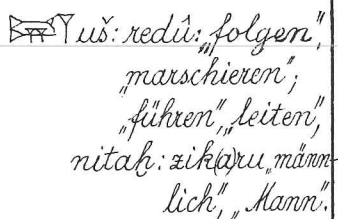 𒍑 uš: redû: „folgen”,
„marschieren”;
„führen”, „leiten”,
nitaḫ: zik(a)ru „männ-
lich”, „Mann”.